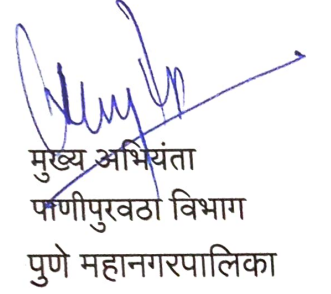 मुख्य अभियंता
पाणीपुरवठा विभाग
पुणे महानगरपालिका